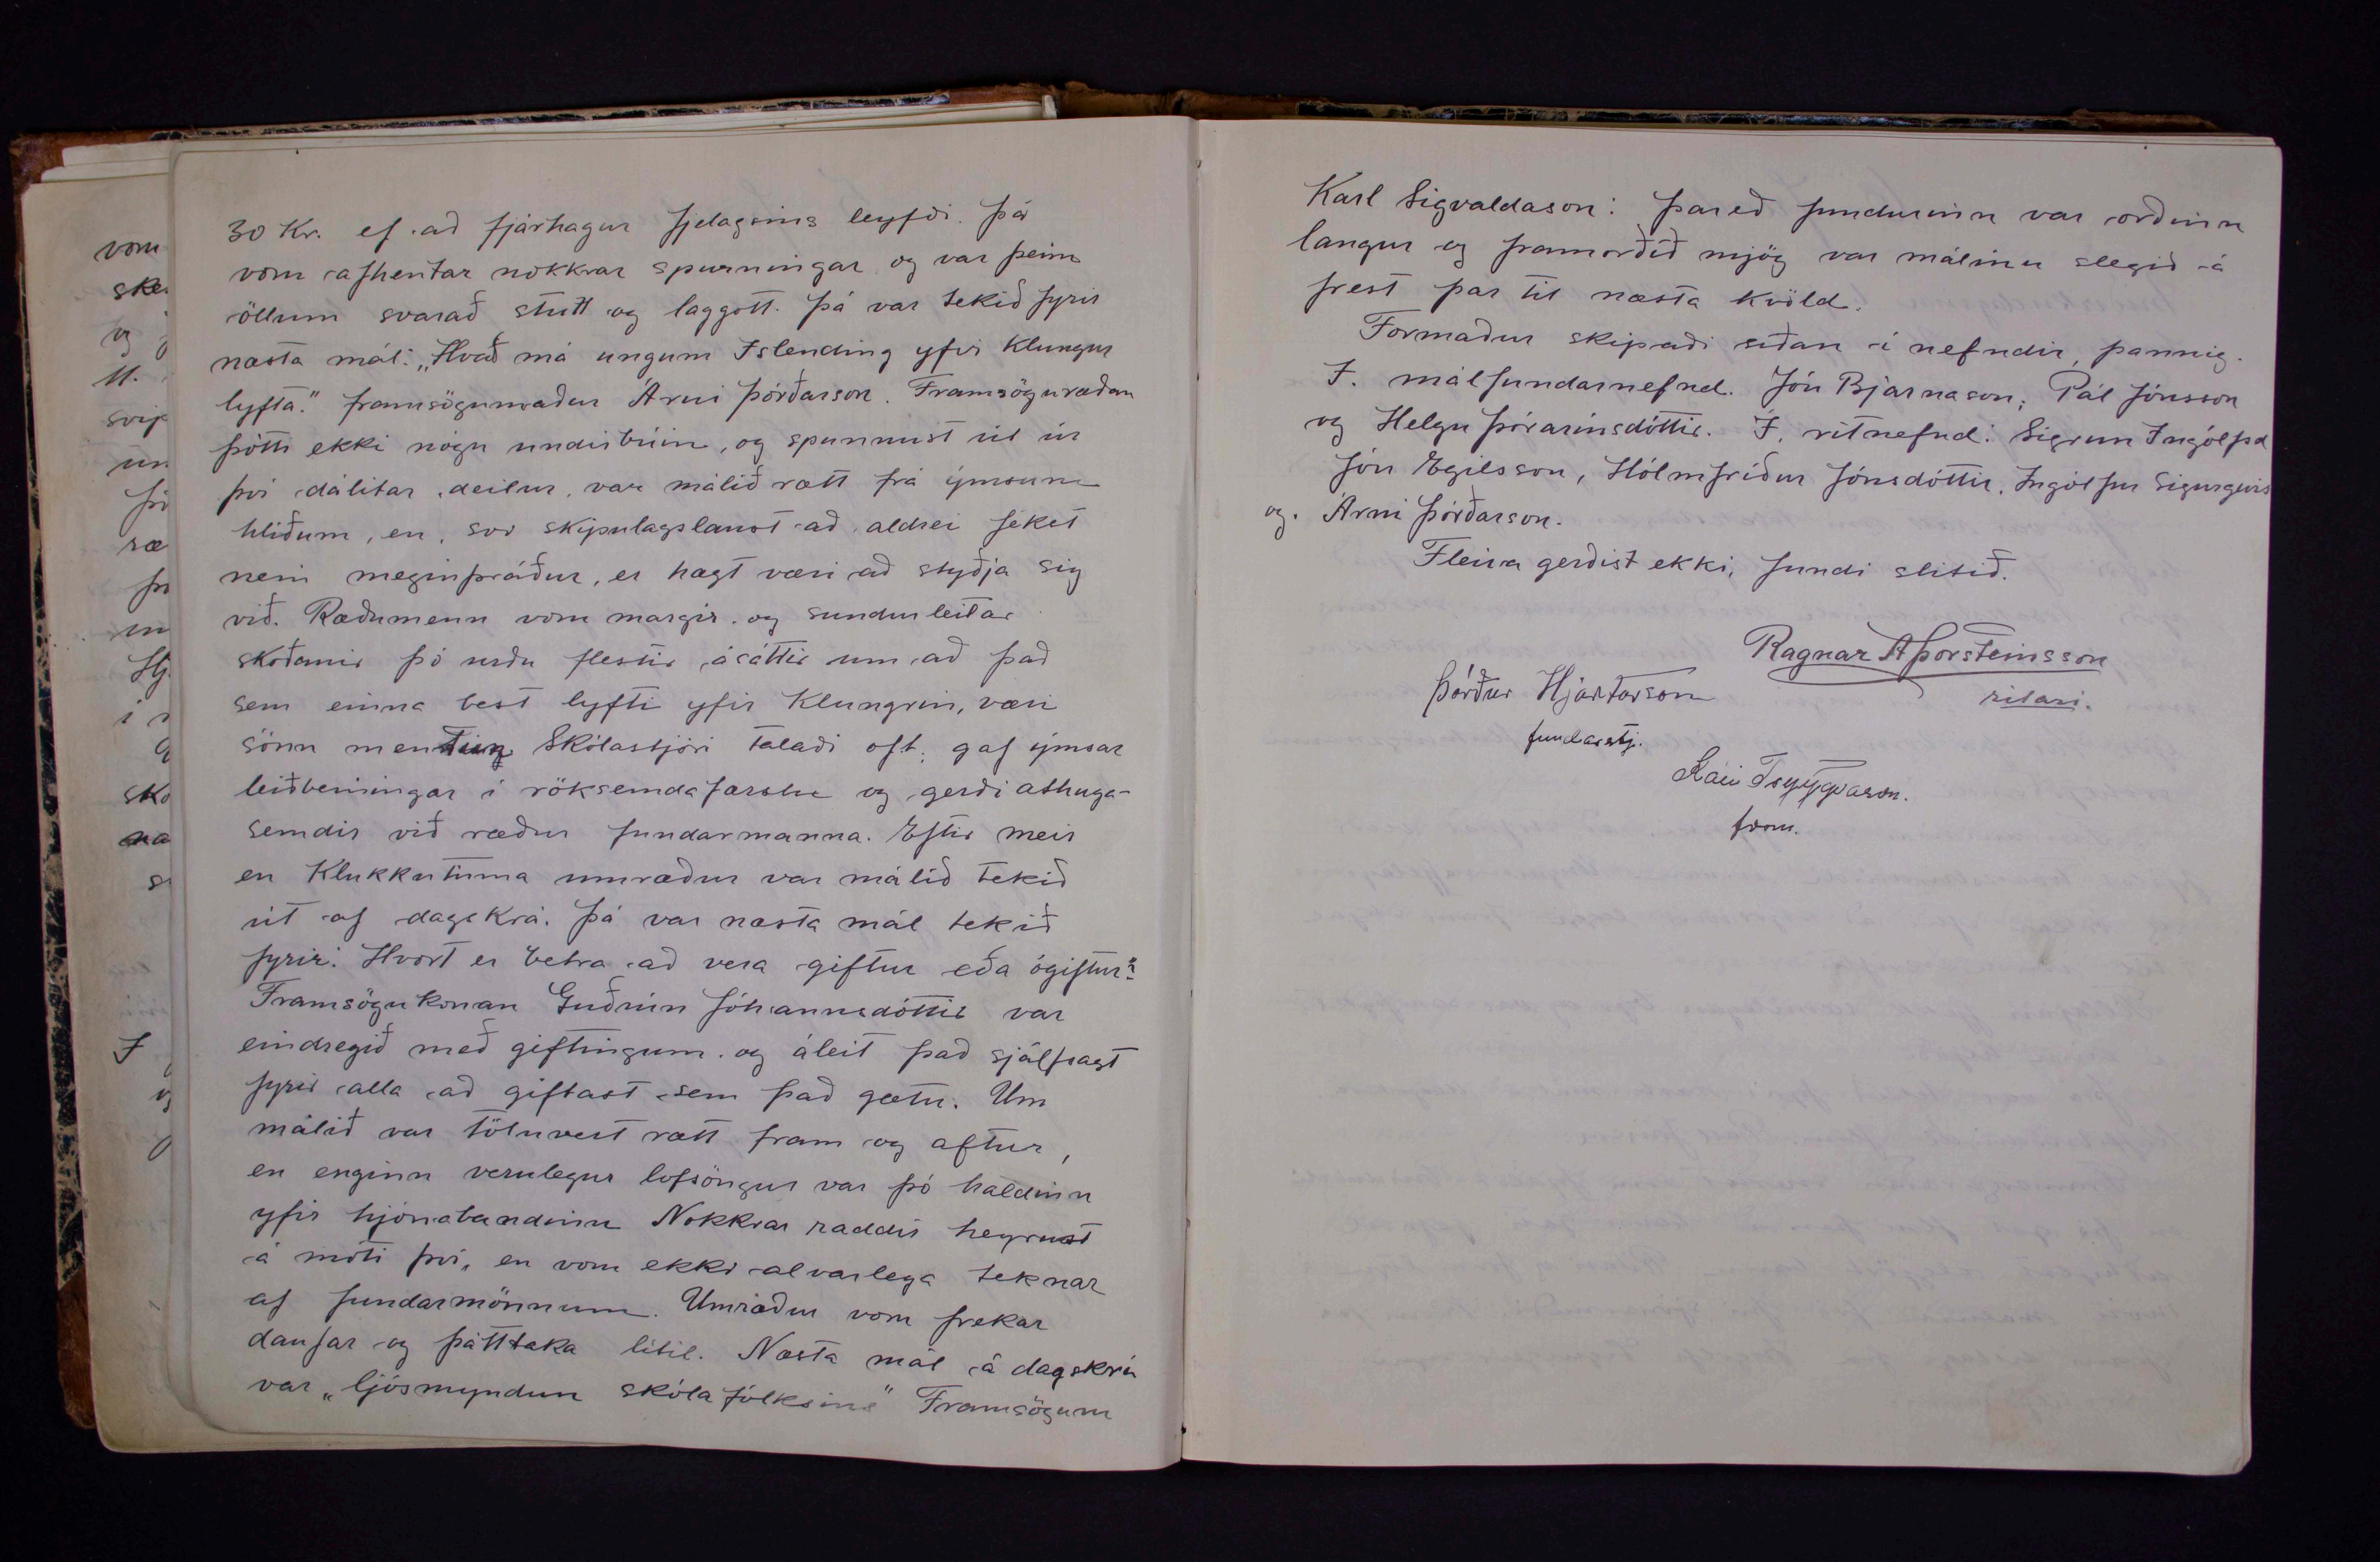 30 Kr. ef að fjárhagur fjelagsins leyfði. Þá
voru afhentar nokkrar spurningar og var þeim
öllum svarað stutt og laggott. Þá var tekið fyrir
næsta mál: „Hvað má ungum Íslending yfir Klungur
lyfta." framsögumaður Árni Þórðarson. Framsöguræðan
þótti ekki nógu undirbúin, og spunnust út úr
því dálitar deilur, var málið rætt frá ýmsum
hliðum, en, svo skipulagslaust að aldrei fekst
nein meginþráður, er hægt væri að styðja sig
við. Ræðumenn voru margir og sundurleitar
skoðanir þó urðu flestir ásáttir um að það
sem einna best lyfti yfir Klungrin, væri
sönn mentun Skólastjóri talaði oft, gaf ýmsar
leiðbeiningar í röksemdafærslu og gerði athuga-
semdir við ræður fundarmanna. Eftir meir
en Klukkutíma umræður var málið tekið
út af dagskrá. Þá var næsta mál tekið
fyrir: Hvort er betra að vera giftur eða ógiftur"?
Framsögukonan Guðrún Jóhannsdóttir var
eindregið með giftingum og áleit það sjálfsagt
fyrir alla að giftast sem það gætu. Um
málið var töluvert rætt fram og aftur,
en enginn verulegur lofsöngur var þó haldinn
yfir hjónabandinu Nokkrar raddir heyrust
á móti því, en voru ekki alvarlega teknar
af fundarmönnum. Umræður voru frekar
daufar og þátttaka lítil. Næsta mál á dagskrá
var „ljósmyndun skólafólksins" Framsögum
Karl Sigvaldason: Þareð fundurinn var orðinn
langur og framorðið mjög var málinu slegið á
frest þar til næsta kvöld.
Formaður skipaði síðan í nefndir, þannig.
Í. málfundarnefnd. Jón Bjarnason, Pál Jónsson
og Helgu Þórarinsdóttir. Í. ritnefnd: Sigrun Ingólfsd
Jón Egilsson, Hólmfríður Jónsdóttir, Ingólfur Sigurgeirs
og. Árni Þórðarson.
Fleira gerðist ekki, fundi slitið.
Ragnar A Þorsteinsson
ritari.
Þórður Hjartarson
fundarstj.
Kári Tryggvason.
form.
vom
ske
og
M.
svip
un
þó
ræ
Hj
í
sko
na